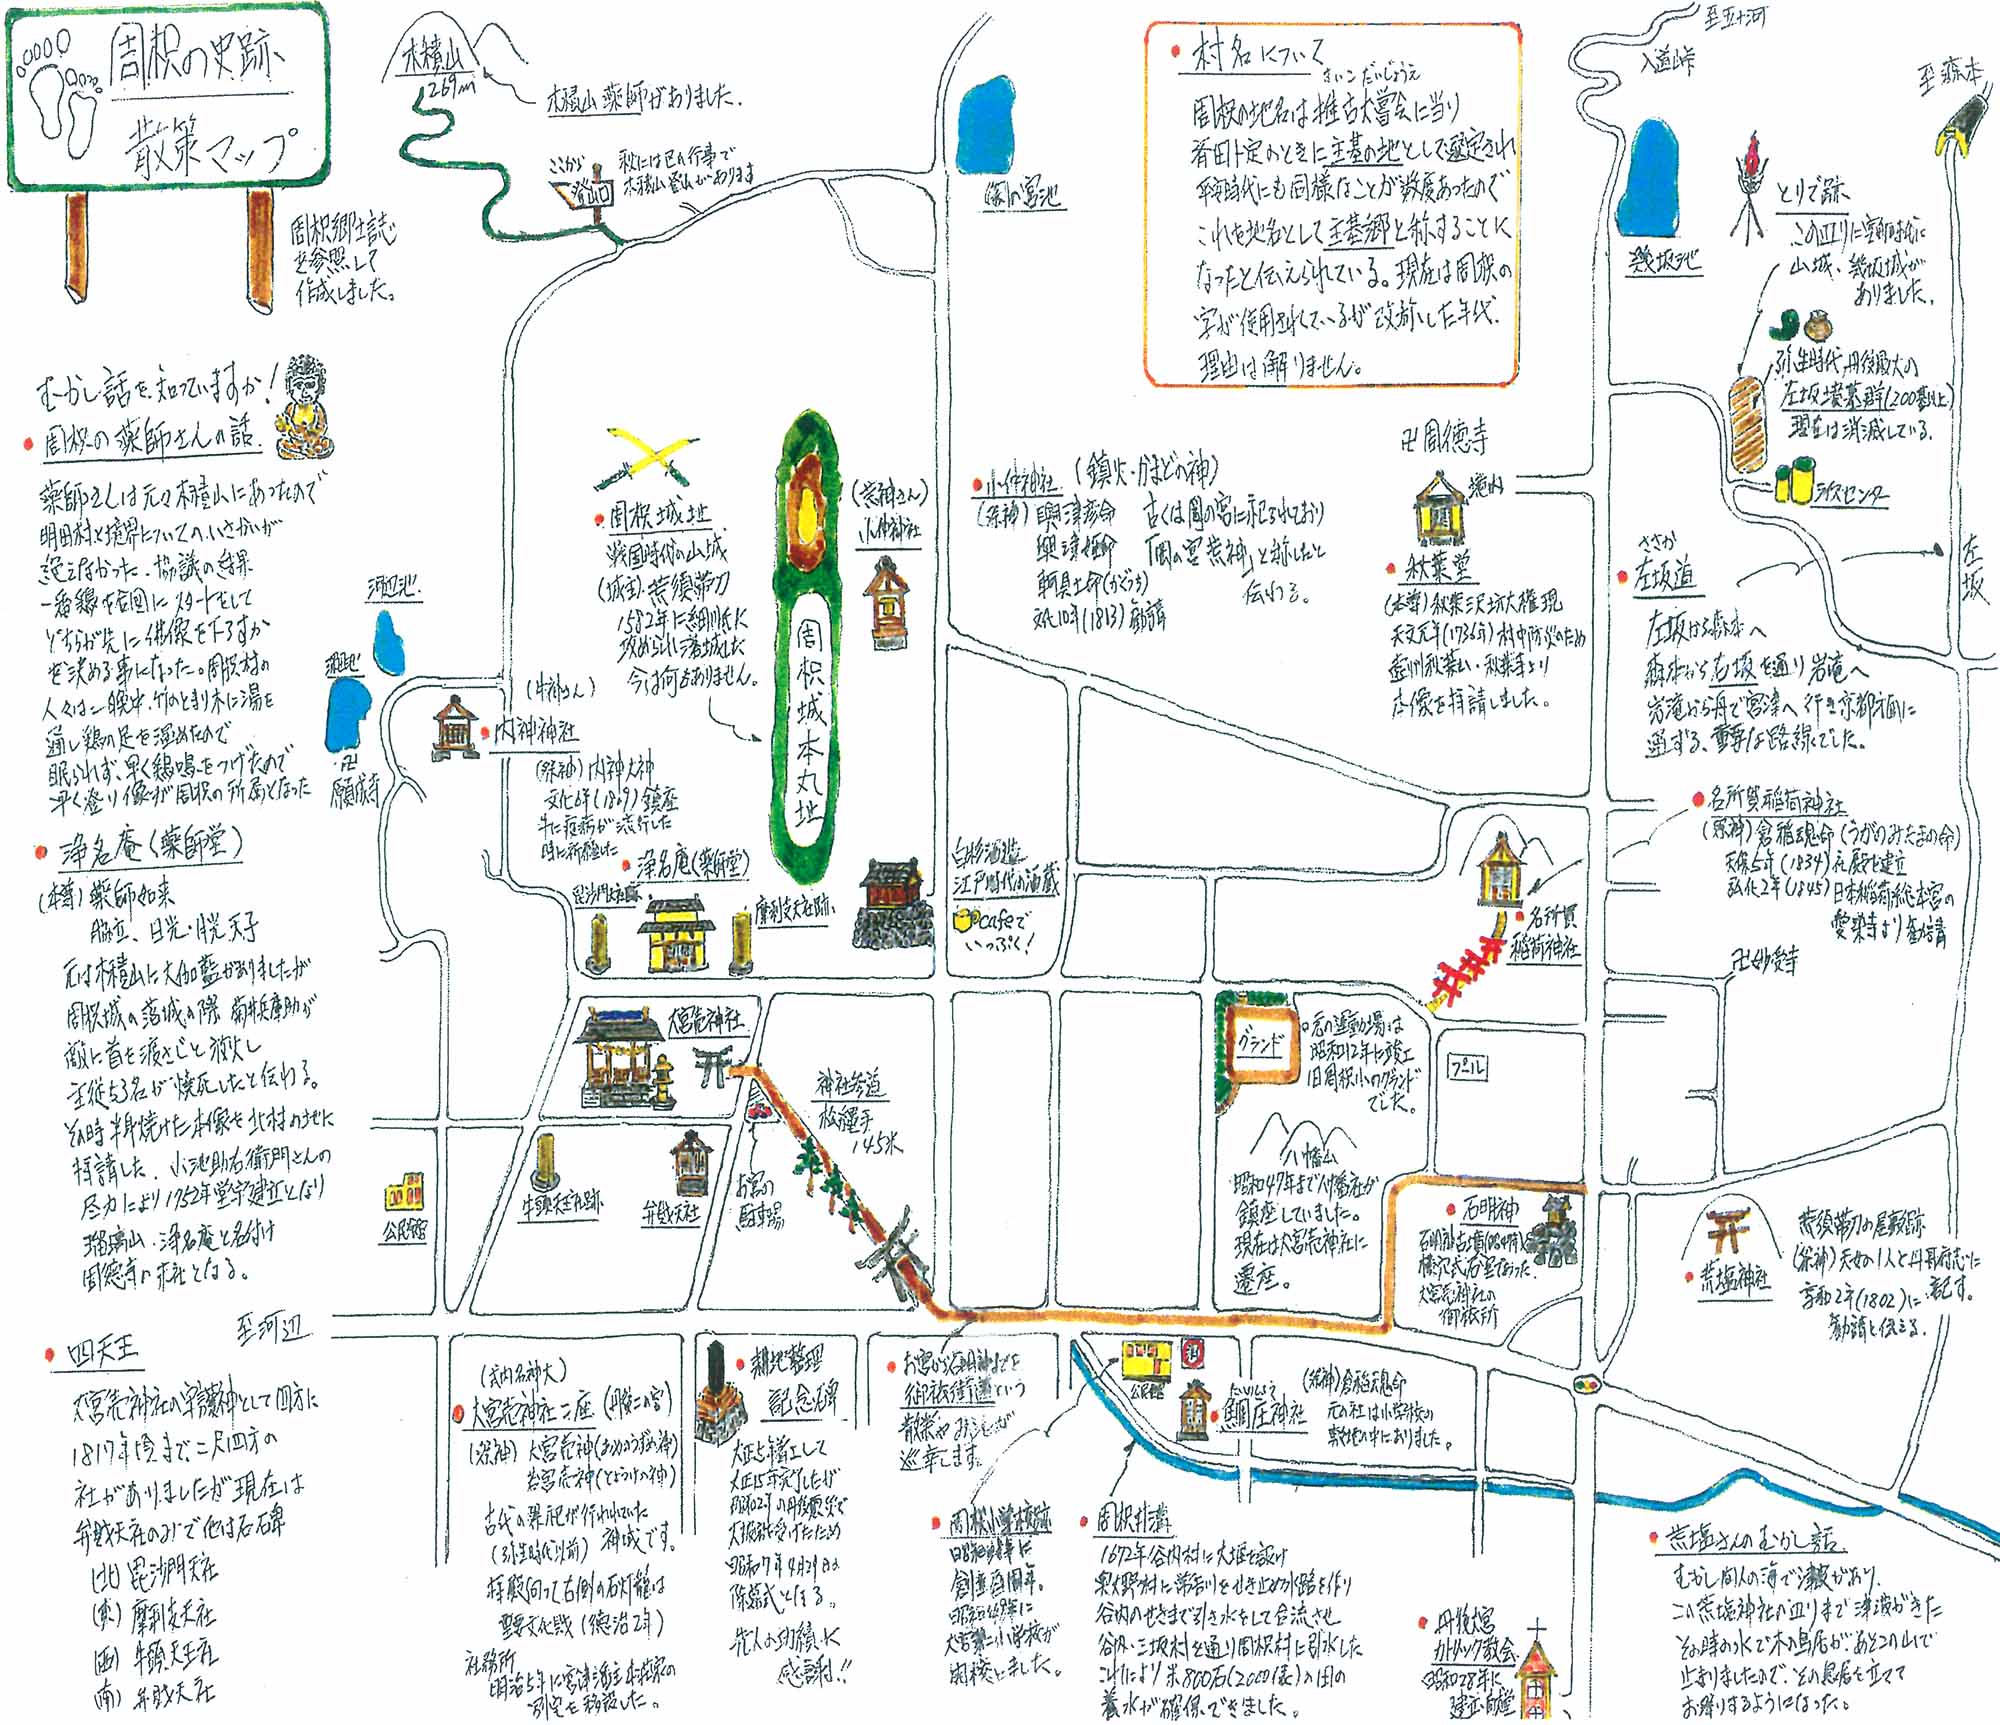 周枳の史跡
散策マップ
周枳郷土誌
を参照して
作成しました。
木積山
269m
木積山薬師がありました。
ここから
登山口
秋には区の行事で
木積山登山があります
岡の宮池
村名について
周枳の地名は推古大嘗会に当り
斉田卜定のときに主基の地として選定され
平安時代にも同様なことが数度あったので
これを地名として主基郷と称することに
なったと伝えられている。現在は周枳の
字が使用されているが改称した年代、
理由は解りません。
至五十河
入道峠
至森本
幾坂池
とりで跡
この辺りに室町時代に
山城、幾坂城が
ありました。
弥生時代、丹後最大の
左坂墳墓群(200基以上)
現在は消滅している。
ライスセンター
むかし話を知っていますか!
周枳の薬師さんの話
薬師さんは元々木積山にあったので
明田村と境界についてのいさかいが
絶えなかった。協議の結果
一番鶏を合図にスタートをして
どちらが先に仏像を下ろすか
を決める事になった。周枳村の
人々は一晩中、竹のとまり木に湯を
通し鶏の足を温めたので
眠られず、早く鶏鳴をつげたので
早く登り像が周枳の所属となった
周枳城址
戦国時代の山城
(城主)荒須帯刀
1582年に細川氏に
攻められ落城した
今は何もありません。
周枳城本丸地
(荒神さん)
小仲神社
小仲神社 (鎮火・かまどの神)
(祭神) 興津彦命
興津姫命
軻具土命(かぐつち)
文化10年(1813)勧請
古くは岡の宮に祀られており
「岡の宮荒神」と称したと
伝わる。
卍周徳寺
境内
秋葉堂
(本尊)秋葉三尺坊大権現
天文元年(1736年)村中防災のため
遠州秋葉山・秋葉寺より
本像を拝請しました。
ささか
左坂道
左坂から森本へ
森本から右坂を通り岩滝へ
岩滝から舟で宮津へ行き京都方面に
通ずる、重要な路線でした。
左坂
河辺池
卍
願成寺
(牛神さん)
内神神社
(祭神)内神大神
文化6年(1809)鎮座
牛に疫病が流行した
時に祈願した
浄名庵(薬師堂)
毘沙門天社跡
摩利支天社跡
白杉酒造
江戸時代の酒蔵
cafeで
いっぷく!
名所賀稲荷神社
(祭神)倉稲魂命(うがのみたまの命)
天保5年(1834)社殿を建立
弘化2年(1845)日本稲荷総本宮の
愛染寺より勧請
名所賀
稲荷神社
卍妙受寺
浄名庵(薬師堂)
(本尊)薬師如来
脇立、日光・月光天子
元は木積山に大伽藍がありましたが
周枳城の落城の際 菊井兵庫助が
敵に首を渡さじと放火し
主従53名が焼死したと伝わる。
その時半身焼けた本像を北村の地に
拝請した。小池助右衛門さんの
尽力により1752年堂宇建立となり
瑠璃山・浄名庵と名付け
周徳寺の末社となる。
大宮売神社
神社参道
松縄手
145米
グランド
元の運動場は
昭和12年に竣工
旧周枳小のグランド
でした。
プール
公民館
牛頭天王社跡
弁財天社
お宮の
駐車場
八幡山
昭和47年まで八幡社が
鎮座していました。
現在は大宮売神社に
遷座。
石明神
石明神古墳(約1400年前)と
横穴式石室であった。
大宮売神社の
御旅所
荒塩神社
荒須帯刀の屋敷跡
(祭神)天女の1人と丹哥府志に
記す。
享和2年(1802)に
勧請と伝える。
至河辺
四天王
大宮売神社の守護神として四方に
1817年頃まで、二尺四方の
社がありましたが現在は
弁財天社のみで他は石碑
(北)毘沙門天社
(東)摩利支天社
(西)牛頭天王社
(南)弁財天社
(式内名神大)
大宮売神社二座 (丹後二の宮)
(祭神)大宮売神(おおみやのめの神)
若宮売神(とようけの神)
古代の祭祀が行われていた
(弥生時代以前) 神域です。
拝殿向って右側の石灯籠は
重要文化財(徳治2年)
社務所
明治5年に宮津藩主本荘家の
別宅を移設した。
耕地整理
記念碑
大正5年着工して
大正15年完了したが
昭和2年の丹後震災で
大被害を受けたため
昭和7年4月29日
除幕式となる。
先人の功績に
感謝!!
お宮から石明神までを
御旅街道という
散策やみこしが
巡幸します。
公民館
鯛庄神社
(祭神)倉稲魂命
元の社は小学校の
敷地の中にありました。
周枳小学校跡
創立百周年。
昭和49年に
大宮第二小学校が
開校しました。
周枳井溝
1672年谷内村に大堰を設け
奥大野村に常吉川をせき止め水路を作り
谷内のせきまで引き水をして合流させ
谷内・三坂村を通り周枳村に引水した
これにより米800石(2000俵)の田の
養水が確保できました。
丹後大宮
カトリック教会
昭和28年に
建立・開堂
荒塩さんのむかし話
むかし間人の海で津波があり、
この荒塩神社の辺りまで津波がきた
その時の水で木の鳥居があとこの山で
止まりましたので、その鳥居を立てて
お祭りするようになった。